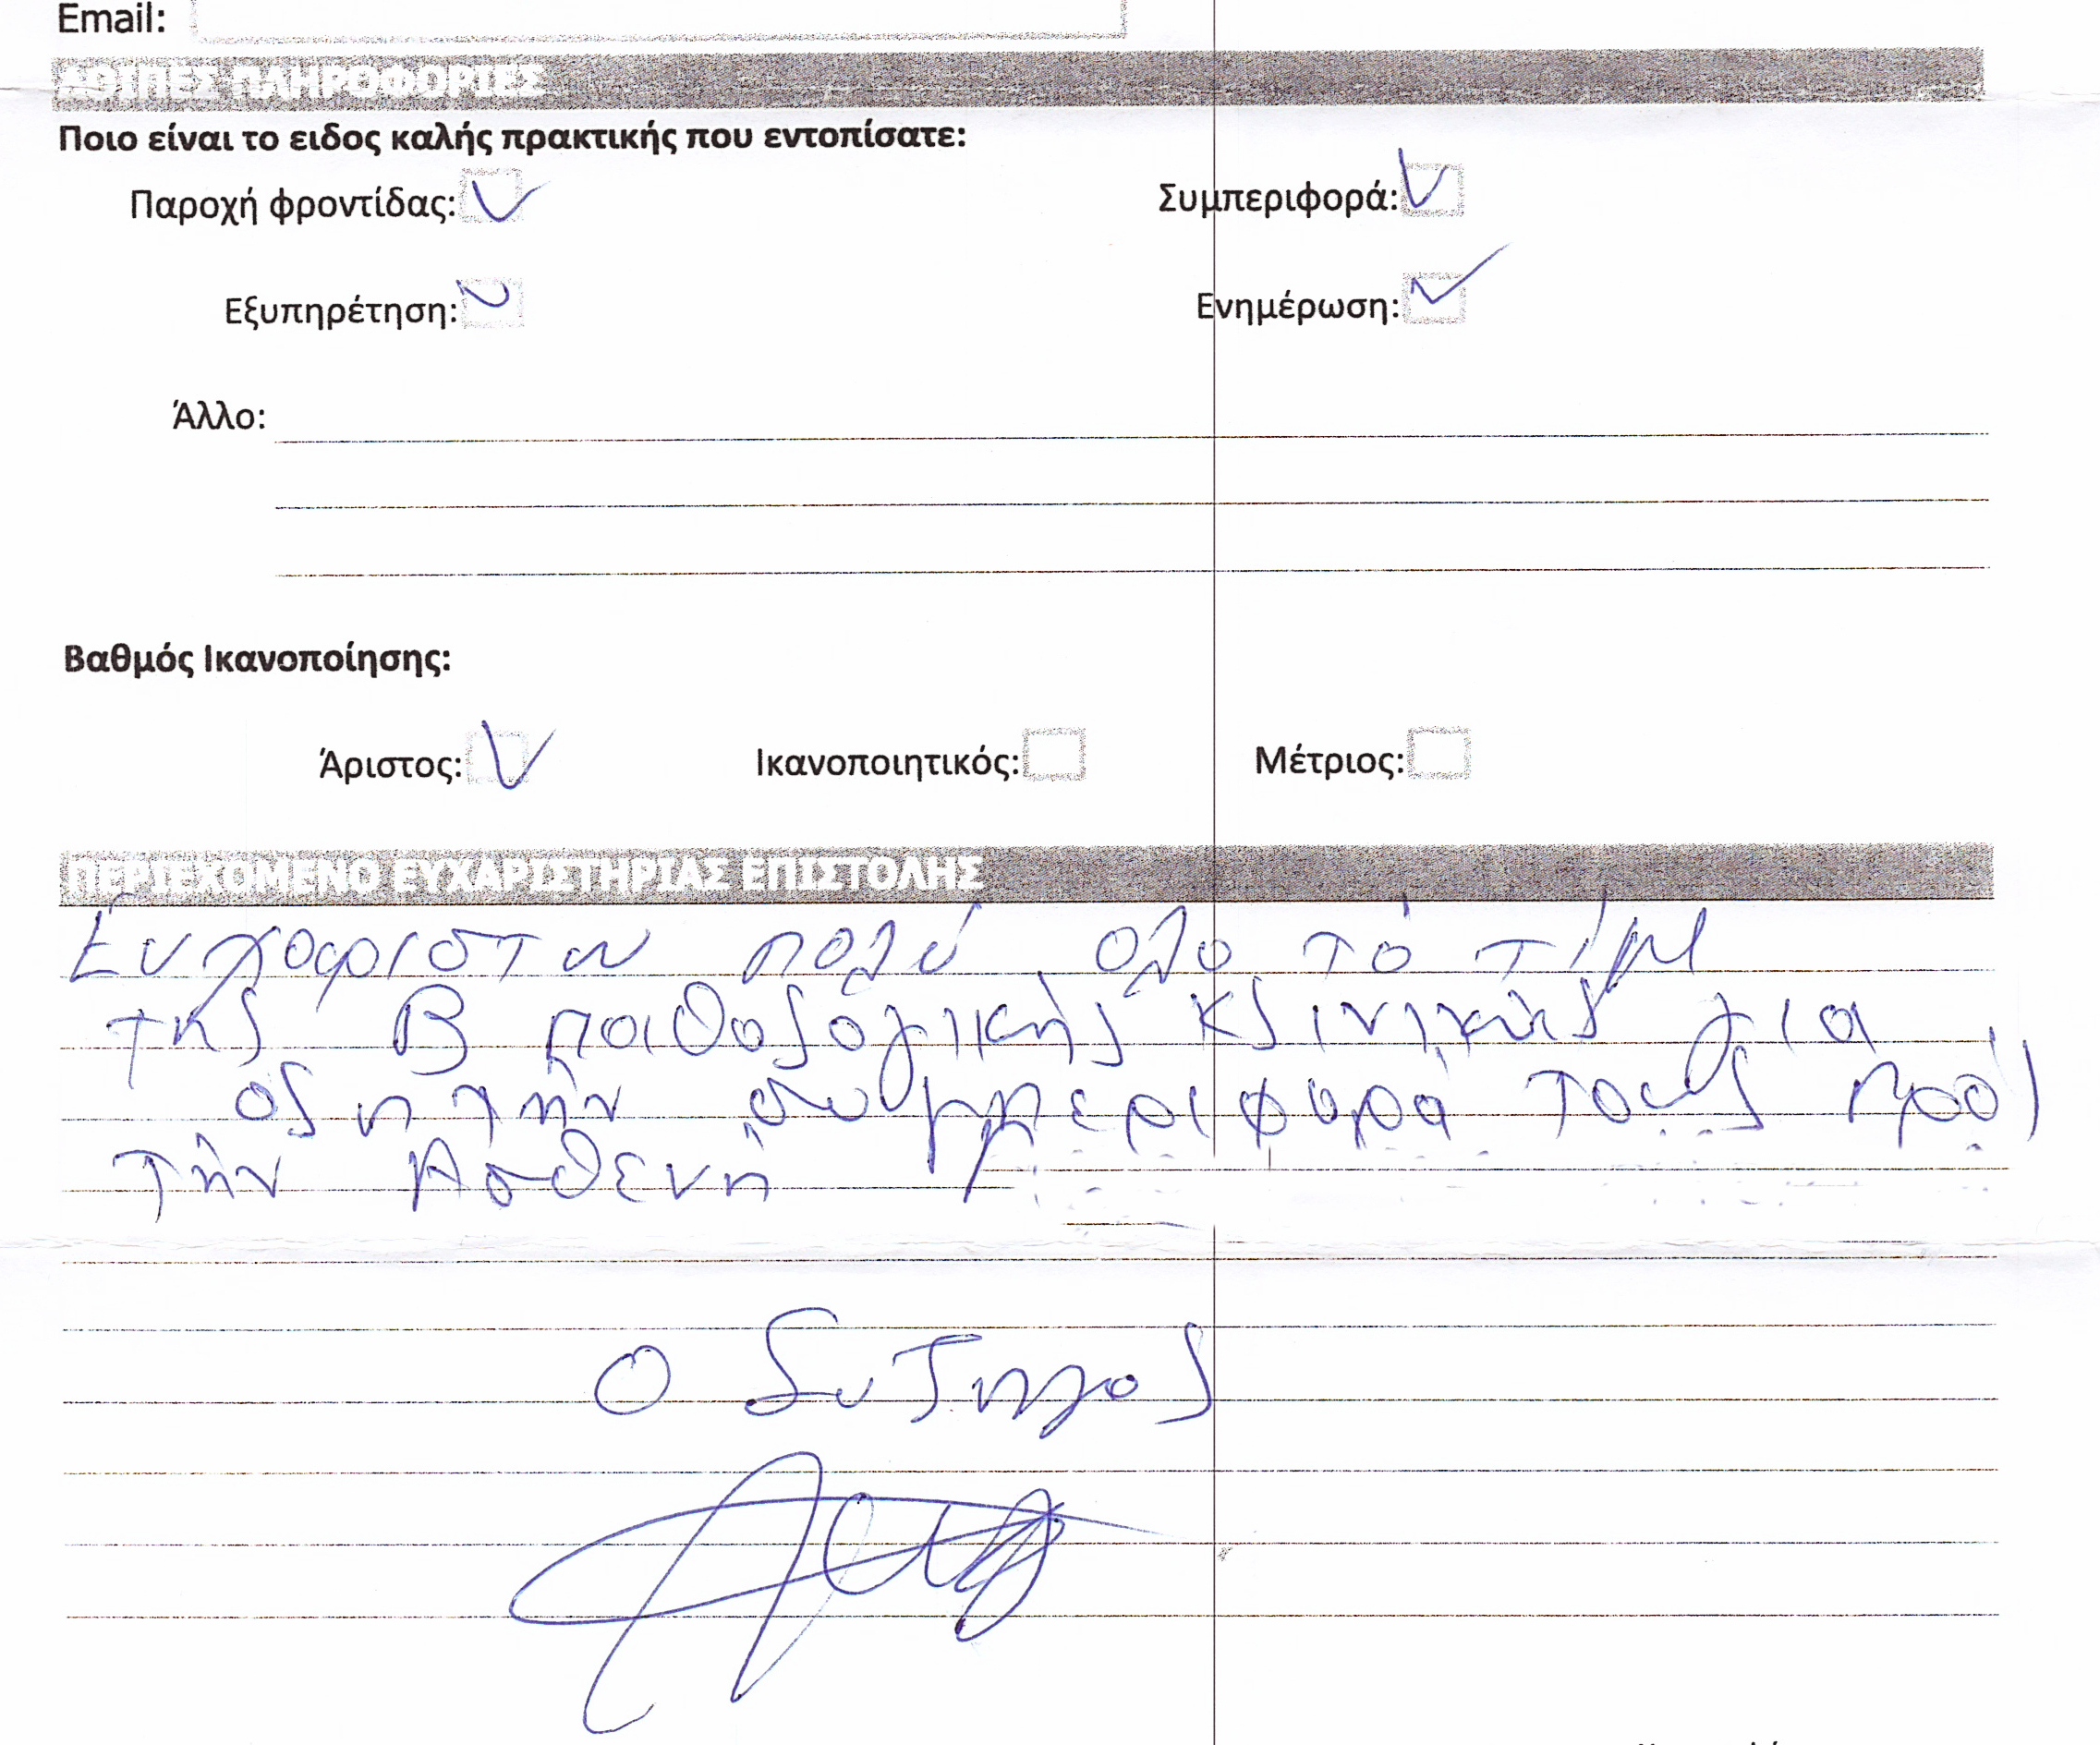 Email:
ΛΟΙΠΕΣ ΠΛΗΡΟΦΟΡΙΕΣ
Ποιο είναι το ειδος καλής πρακτικής που εντοπίσατε:
Παροχή φροντίδας: Συμπεριφορά:
Εξυπηρέτηση: Ενημέρωση:
Άλλο:
Βαθμός Ικανοποίησης:
Άριστος: Ικανοποιητικός: Μέτριος:
ΠΕΡΙΕΧΟΜΕΝΟ ΕΥΧΑΡΙΣΤΗΡΙΑΣ ΕΠΙΣΤΟΛΗΣ
Ευχαριστω πολύ ολο τό τίμ
της Β παθολογικής κλινικής για
ολη τήν συμπεριφορά τους πρός
τήν Ασθενή
Ο Συζηγος